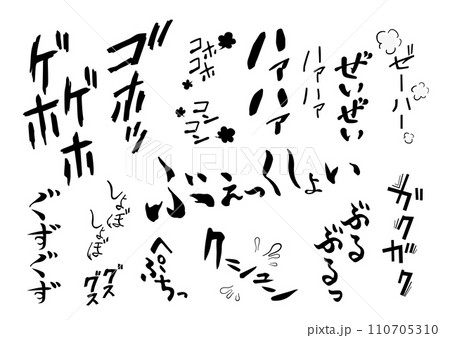 ゲホ
ゲホ
ゴホッ
コホ
コホ
コン
コン
ハァハァ
ハァハァ
ぜいぜい
ゼーハー
ぶえっくしょい
ぐずぐず
しょぼ
しょぼ
グス
グス
へぷちっ
クシュン
ぶる
ぶるっ
ガクガク
PIXTA
pixta.jp - 110705310